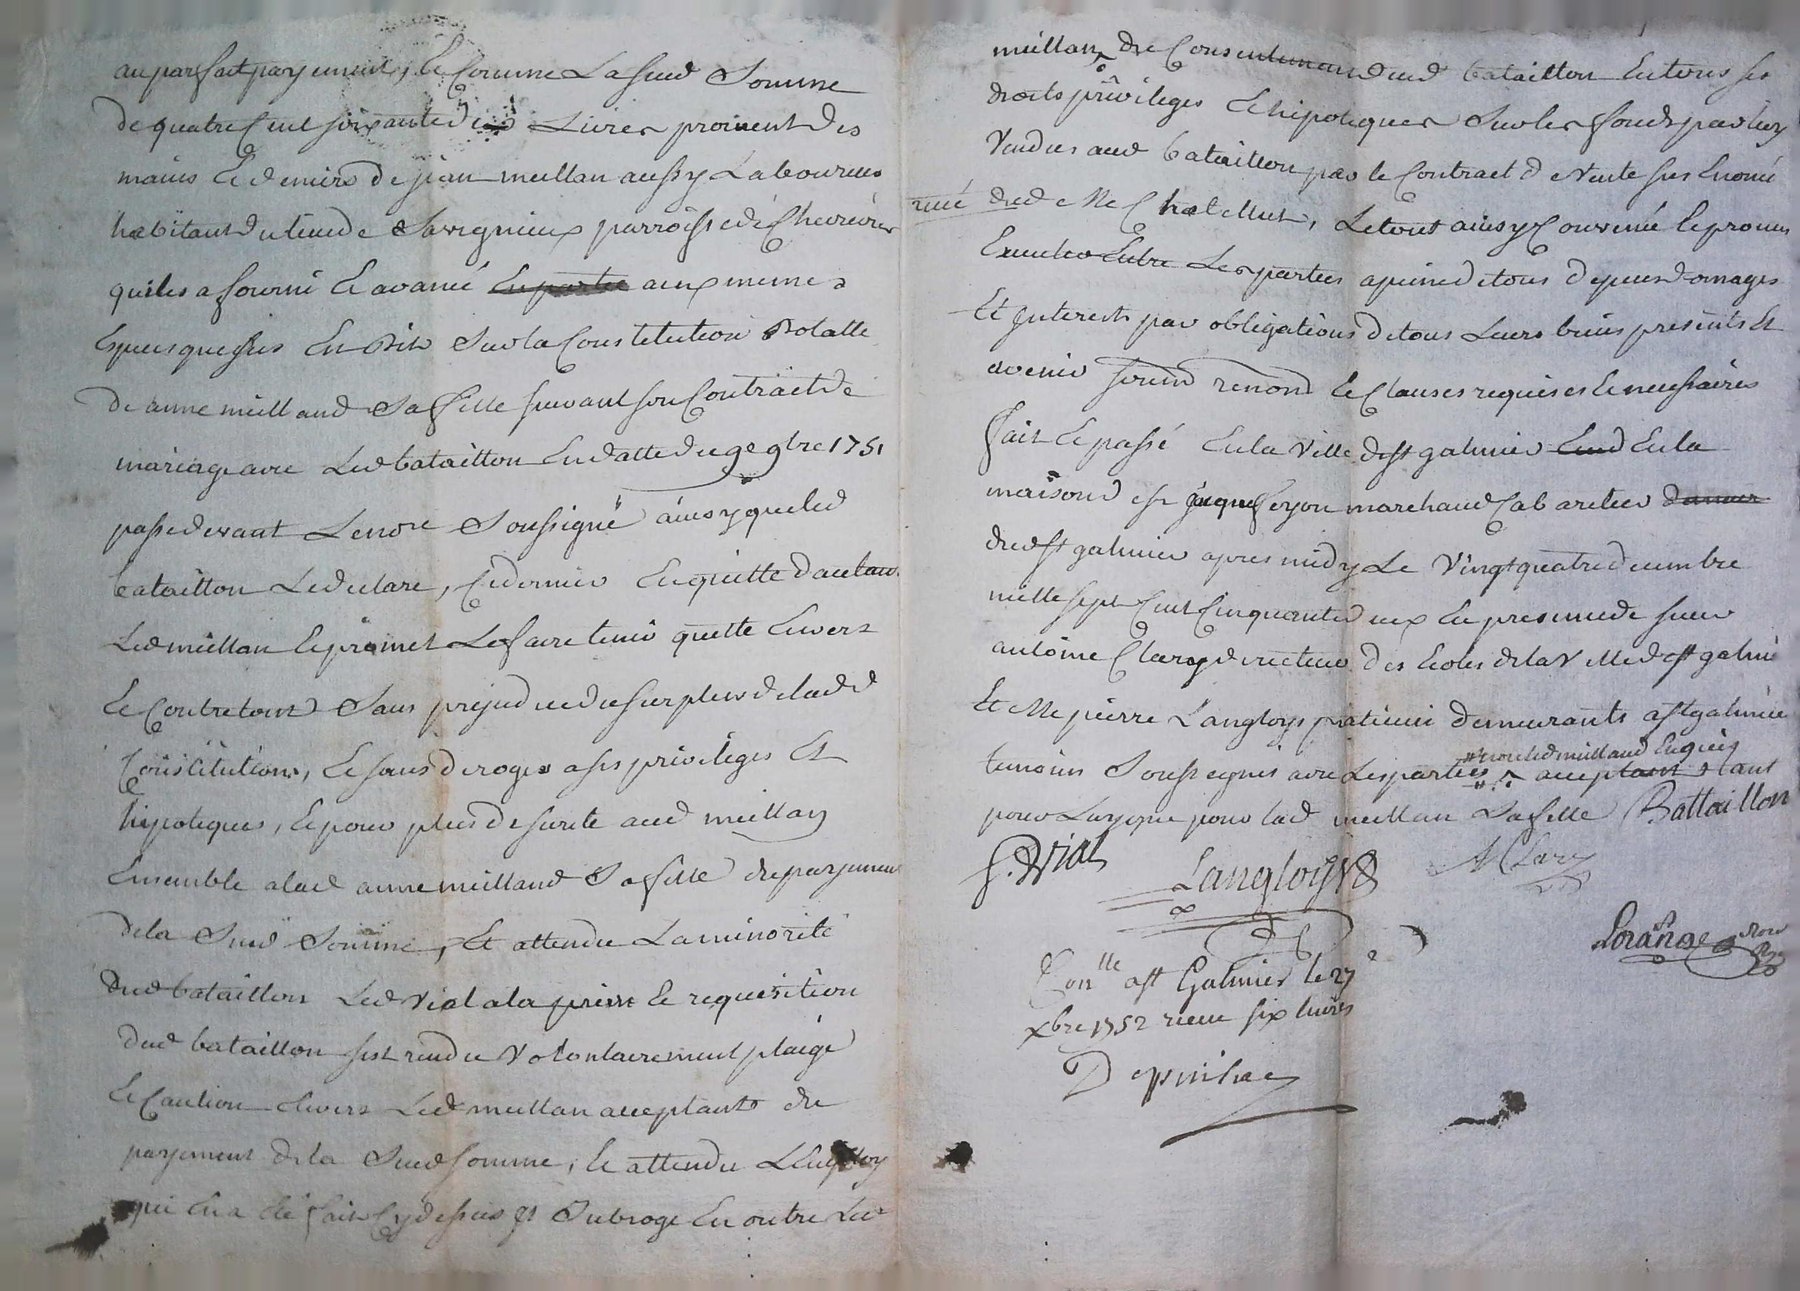 au parfait payement, & Comme La susd Somme
de quatre Cent soixante Livres provient des
mains & deniers de jean meillan aussy Laboureur
habitant du lieu de Savignieux parroisse de Chevrieres
qu'il a fourni & avancé aux mesmes
Especes que sus En Dix Sur la Constitution Dotalle
de anne meilland Sa fille suivant son Contract de
mariage avec Led bataillon En datte du 9e 9bre 1751
passé devant Le nore Soussigné ainsy que led
bataillon Le declare, Ce dernier En quitte d'autant
Led meillan & promet Le faire tenir quitte Envers
& Contre tous Sans prejudice du surplus de lad
Constitution, & sans deroger a ses privileges Et
hipoteques, & pour plus de surete aud meillan
Ensemble a lad anne meilland Sa fille du payement
de la Susd Somme, Et attendu La minorité
dud bataillon Led Vial a la priere & requisition
dud bataillon s'est rendu Volontairement pleige
& Caution Envers Led meillan acceptant du
payement de la Susd somme, & attendu L'employ
qui En a été fait Cy dessus est Subrogé En outre Led
meillan du Consentement dud bataillon En tous ses
droits privileges & hipoteques Sur les fonds par luy
Vendus aud bataillon par le Contract de Vente sus Enoncé
receu dud Me Chatelus, Le tout ainsy Convenu & promis
Executer Entre Les parties a peine de tous depens domages
Et Interests par obligations de tous Leurs biens presents Et
avenir soumd renond & Clauses requises & necessaires
fait & passé En la Ville de st galmier En la
maison de sr jaques seyon marchand Cabaretier
dud st galmier apres midy Le Vingt quatre decembre
mille sept Cent Cinquante deux En presence de sieur
antoine Clary directeur des Ecoles de la Ville de st galmié
Et Me pierre Langloys praticien demeurants a st galmier
temoins Soussignés avec Les parties non led meilland Enquis
acceptant étant
pour Luy que pour lad meillan Sa fille Battaillon
f. Vial Langloys A Clary
Lorange Nore Roy
Conlle a st Galmier le 27e
xbre 1752 receu six livres
Depinhac